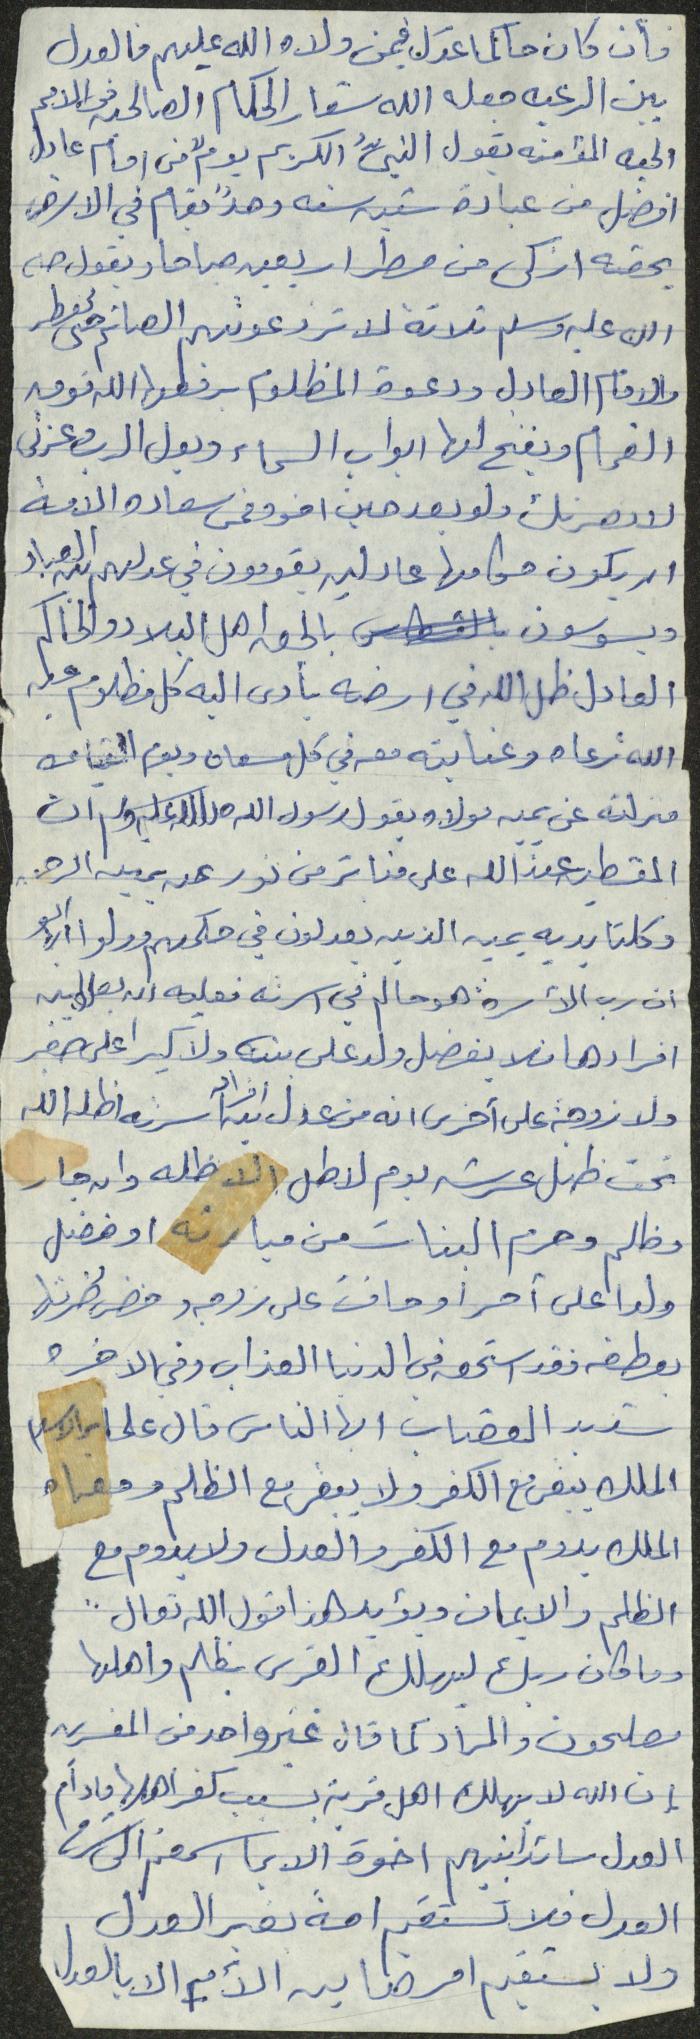 فأن كان حاكما عدل فيمن ولاه الله عليهم فالعدل
بين الرعيه جعله الله شعار الحكام الصالحين في الامم
الحيه المؤمنه يقول النبي الكريم يوم من امام عادل
افضل من عبادة ستين سنه وحد يقام في الارض
بحقه ازكى من مطر اربعين صباحا ويقول صلى
الله عليه وسلم ثلاثة لا ترد دعوتهم الصائم حتى يفطر
والامام العادل ودعوة المظلوم يرفعها الله فوق
الغمام ويفتح لها ابواب السماء ويقول الرب وعزتي
لانصرنك ولو بعد حين اخوة فمن سعاده الامة
ان يكون حكامها عادلين يقومون في عدلهم بين العباد
ويسوسون بالحق اهل البلاد والحاكم
العادل ظل الله في ارضه يأوى اليه كل مظلوم عين
الله ترعاه وعنايته معه في كل مسعاه ويوم القيامه
منزلته عن يمين مولاه يقول رسول الله صلى الله عليه وسلم ان
المقسطين عند الله على منابر من نور عن يمين الرحمن
وكلتا يديه يمين الذين يعدلون في حكمهم وما ولوا
ان رب الأسرة هو حاكم في اسرته فعليه ان يعدل بين
افرادها فلا يفضل ولد على بنت ولا كبيرا على صغير
ولا زوجة على أخرى انه من عدل بين أفراد أسرته اظله الله
تحت ظل عرشه يوم لا ظل إلا ظله وان جار
وظلم وحرم البنات من ميراثه او فضل
ولدا على أخر أو حاف على زوجه وخص ضرتها
بعطفه فقد استحق في الدنيا العذاب وفي الاخره
شديد العقاب ايها الناس قال علماء الاسلام
الملك يبقى مع الكفر ولا يبقى مع الظلم ومعناه
الملك يدوم مع الكفر والعدل ولا يدوم مع
الظلم والايمان ويؤيد هذا قول الله تعالى
وما كان ربك ليهلك القرى بظلم واهلها
مصلحون والمراد كما قال غير واحد من المفسرين
إن الله لا يهلك اهل قرية بسبب كفر اهلها مادام
العدل سائدا بينهم اخوة الايمان اسمعتم الى شرف
العدل فلا تستقيم امة بغير العدل
ولا يستقيم امر هذا بين الأمم الا بالعدل